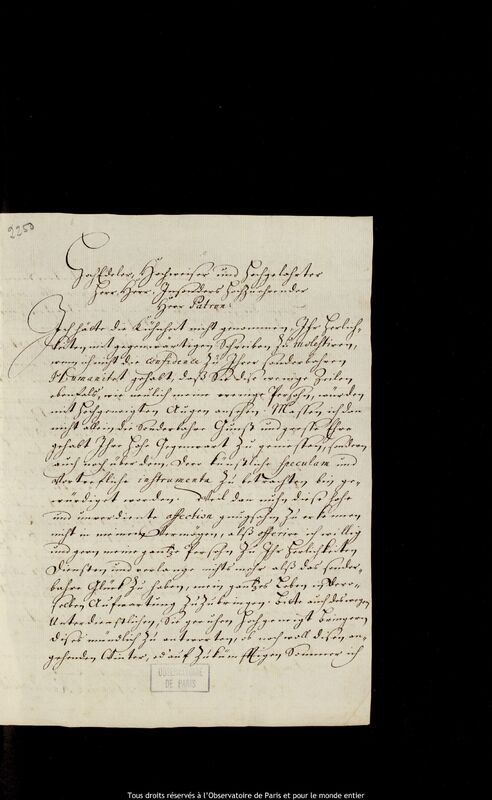 2250
HochEdeler, Hochweiser und Hochgelahrter
Herr Herr, Insonders Hochzuehrender
Herr Patron.
Ich hätte die Kühnheit nicht genommen, Ihr Herlich-
keiten, mit gegenwärtigen Schreiben, zu molestiren,
wenn ich nicht die confidence zu Ihrer sonderbahren
Humanitet gehabt, daß Sie dise wenige Zeilen
ebenfals, wie neulich meine wenige Persohn, würden
mit Hochgeneigten Augen ansehen. Massen ich dan
nicht allein die Sonderbahre Gunst und grosse Ehre
gehabt Ihre Hohe Gegenwart zu geniessen, sondern
auch noch über dem, Dero künstliche specula und
Vortrefliche instrumenta zu betrachten bin ge-
würdiget worden. Weil dan nuhn diese hohe
und unverdiente affection gnugsahm zu erkennen
nicht in meinem Vermögen, alß offerire ich willig
und gern meine gantze Persohn zu Ihr Herlichkeiten
Diensten, und verlange nichts mehr alß das sonder-
bahre Glük zu haben, mein gantzes Leben in Dero-
selben Aufwartung zuzubringen. Bitte auch deswegen
Unterdienstlichen, Sie geruhen Hochgeneigt
dises mündlich zu antworten, ob noch woll disen an-
gehenden Winter, od auf zukünfftigen Sommer ich
OBSERVATOIRE
DE PARIS
Tous droits réservés à l'Observatoire de Paris et pour le monde entier